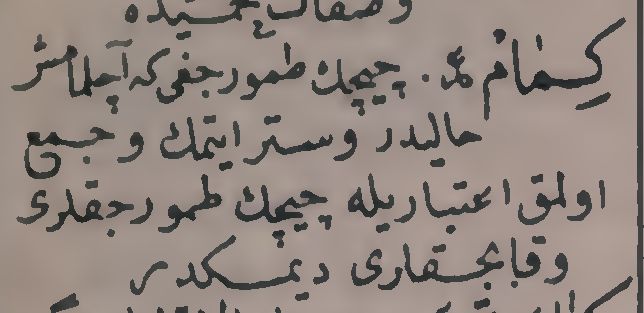 وصفات حمیده
كمام چیچك طمورجغی كه آچلمامش
حالیدر وستر ایتمك وجمع
اولمق اعتباریله چیچك طمورجقلری
وقابجقلری دیمكدر